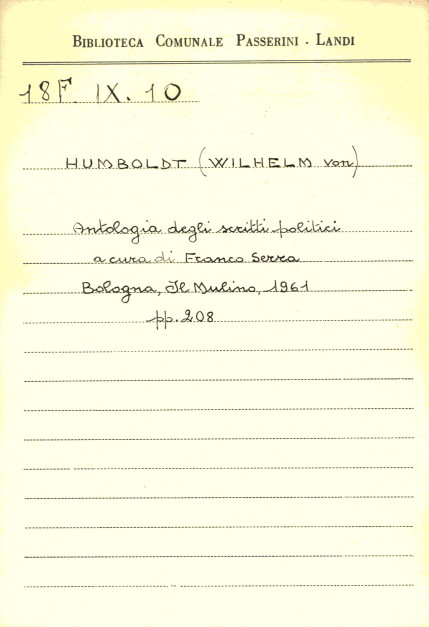 BIBLIOTECA COMUNALE PASSERINI - LANDI
18F. IX. 10
HUMBOLDT (WILHELM von)
Antologia degli scritti politici
a cura di Franco Serra
Bologna, Il Mulino, 1961
pp. 208